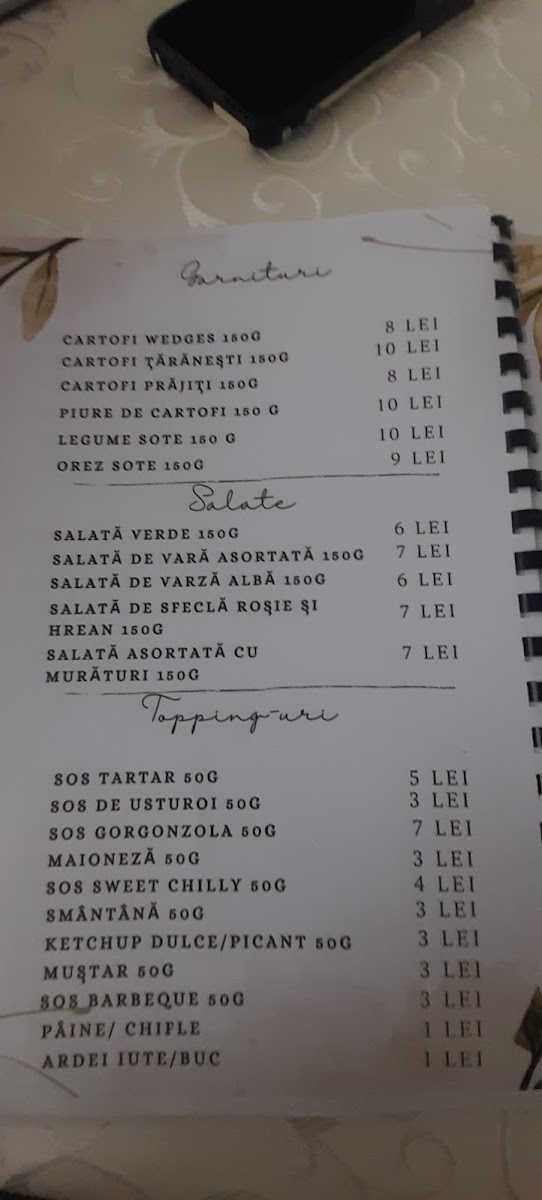 Garnituri
CARTOFI WEDGES 150G 8 LEI
CARTOFI ȚĂRĂNEȘTI 150G 10 LEI
CARTOFI PRĂJIȚI 150G 8 LEI
PIURE DE CARTOFI 150 G 10 LEI
LEGUME SOTE 150 G 10 LEI
OREZ SOTE 150G 9 LEI
Salate
SALATĂ VERDE 150G 6 LEI
SALATĂ DE VARĂ ASORTATĂ 150G 7 LEI
SALATĂ DE VARZĂ ALBĂ 150G 6 LEI
SALATĂ DE SFECLĂ ROȘIE ȘI 7 LEI
HREAN 150G
SALATĂ ASORTATĂ CU 7 LEI
MURĂTURI 150G
Topping-uri
SOS TARTAR 50G 5 LEI
SOS DE USTUROI 50G 3 LEI
SOS GORGONZOLA 50G 7 LEI
MAIONEZĂ 50G 3 LEI
SOS SWEET CHILLY 50G 4 LEI
SMÂNTÂNĂ 50G 3 LEI
KETCHUP DULCE/PICANT 50G 3 LEI
MUȘTAR 50G 3 LEI
SOS BARBEQUE 50G 3 LEI
PÂINE/ CHIFLE 1 LEI
ARDEI IUTE/BUC 1 LEI